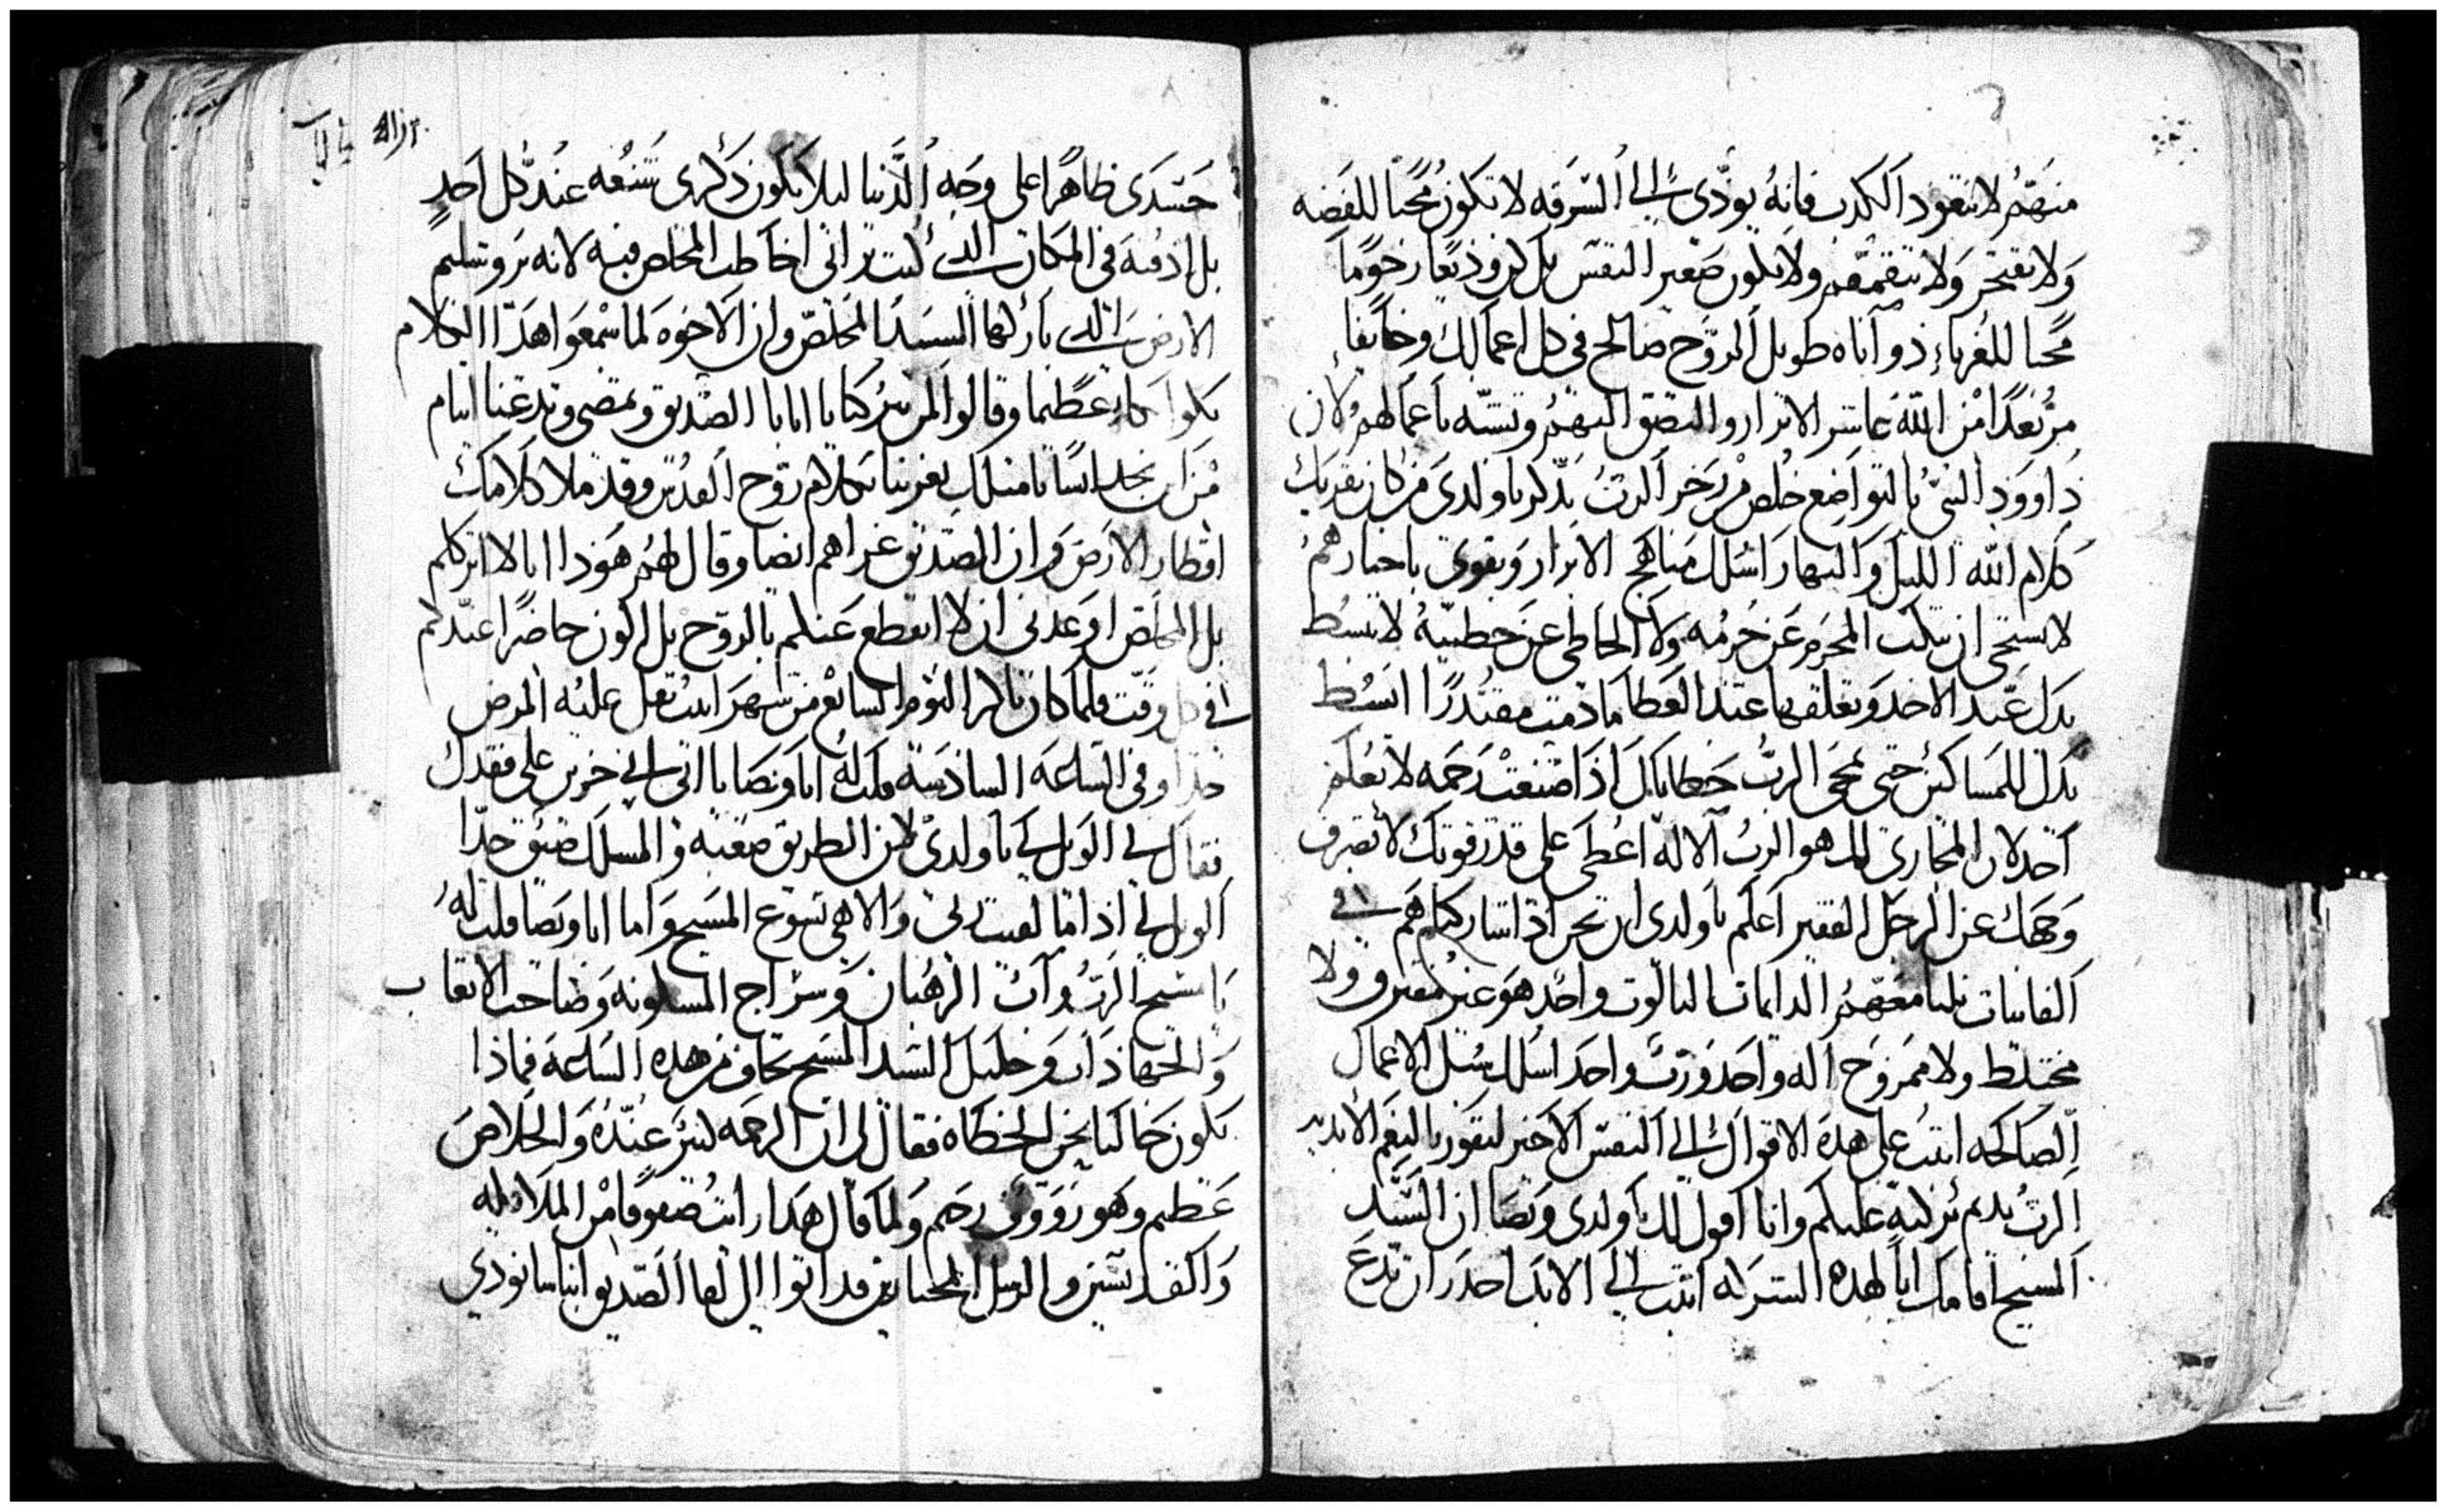 منهم لا تتعود الكدب فانه يودى الى السرقه لا تكون محبا للفضه
ولا تفتخر ولا تتقمقم ولا تكون صغير النفس بل كن وديعا رحوما
محبا للغرباء ذو اناه طويل الروح صالح في كل اعمالك وخايفا
مرتعدا من الله عاشر الابرار والتصق اليهم وتشبه باعمالهم لان
داوود النبى بالتواضع خلص من رجز الرب تذكر يا ولدى من كان يقريك
كلام الله الليل والنهار اسلك مناهج الابرار وتقوى باخبارهم
لا تستحى ان تبكت المجرم عن جرمه ولا الخاطى عن خطيته لا تبسط
يدك عند الاخد وتغلقها عند العطا ما دمت مقتدرا ابسط
يدك للمساكين حتى يمحى الرب خطاياك اذا صنعت رحمه لا تعلم
احد لان المجازى لك هو الرب الاله اعطى على قدر قوتك لا تصرف
وجهك عن الرجل الفقير اعلم يا ولدى ان نحن اذا شاركناهم في
الفانيات نلنا معهم الدايمات الثالوث واحد هو غير مفترق ولا
مختلط ولا ممزوج اله واحد ورب واحد اسلك سبل الاعمال
الصالحه اثبت على هده الاقوال الى النفس الاخير لتفوز بالنعم الابديه
الرب يديم بركته عليكم وانا اقول لك يا ولدى ويصا ان السيد
المسيح اقامك ابا لهده الشركه اثبت الى الابد احدر ان تدع
جسدى ظاهرا على وجه الدنيا ليلا يكون ذكرى شنعه عند كل احد
بل ادفنه في المكان الدى كنت ترانى اخاطب المخلص فيه لانه يروشليم
الارض التى باركها السيد المخلص وان الاخوه لما سمعوا هدا الكلام
بكوا بكاء عظيما وقالوا لمن تتركنا يا ابانا الصديق وتمضى وتدعنا ايتام
من اين نجد انسانا مثلك يعزينا بكلام روح القدس وقد ملا كلامك
اقطار الارض وان الصديق عزاهم ايضا وقال لهم هودا انا لا اترككم
بل المخلص اوعدنى ان لا انقطع عنكم بالروح بل اكون حاضرا عندكم
في كل وقت فلما كان باكر اليوم السابع من شهر ابيب ثقل عليه المرض
جدا وفى الساعه السادسه قلت له انا ويصا يا ابى انى حزين على فقدك
فقال لى الويل لى يا ولدى لان الطريق صعبه والمسلك ضيق جدا
الويل لى اذا ما لقيت ربى والاهى يسوع المسيح واما انا ويصا قلت له
يا شيخ الرب واب الرهبان وسراج المسكونه وصاحب الاتعاب
والجهاد انت وخليل السيد المسيح تخاف من هده الساعه فماذا
يكون حالنا نحن الخطاه فقال لى ان الرحمه لتر عنده والخلاص
عظيم وهو رووف رحيم ولما قال هدا رايت صفوفا من الملايكه
والقديسين والرسل المختارين قد اتوا الى لقا الصديق ابينا شانودي